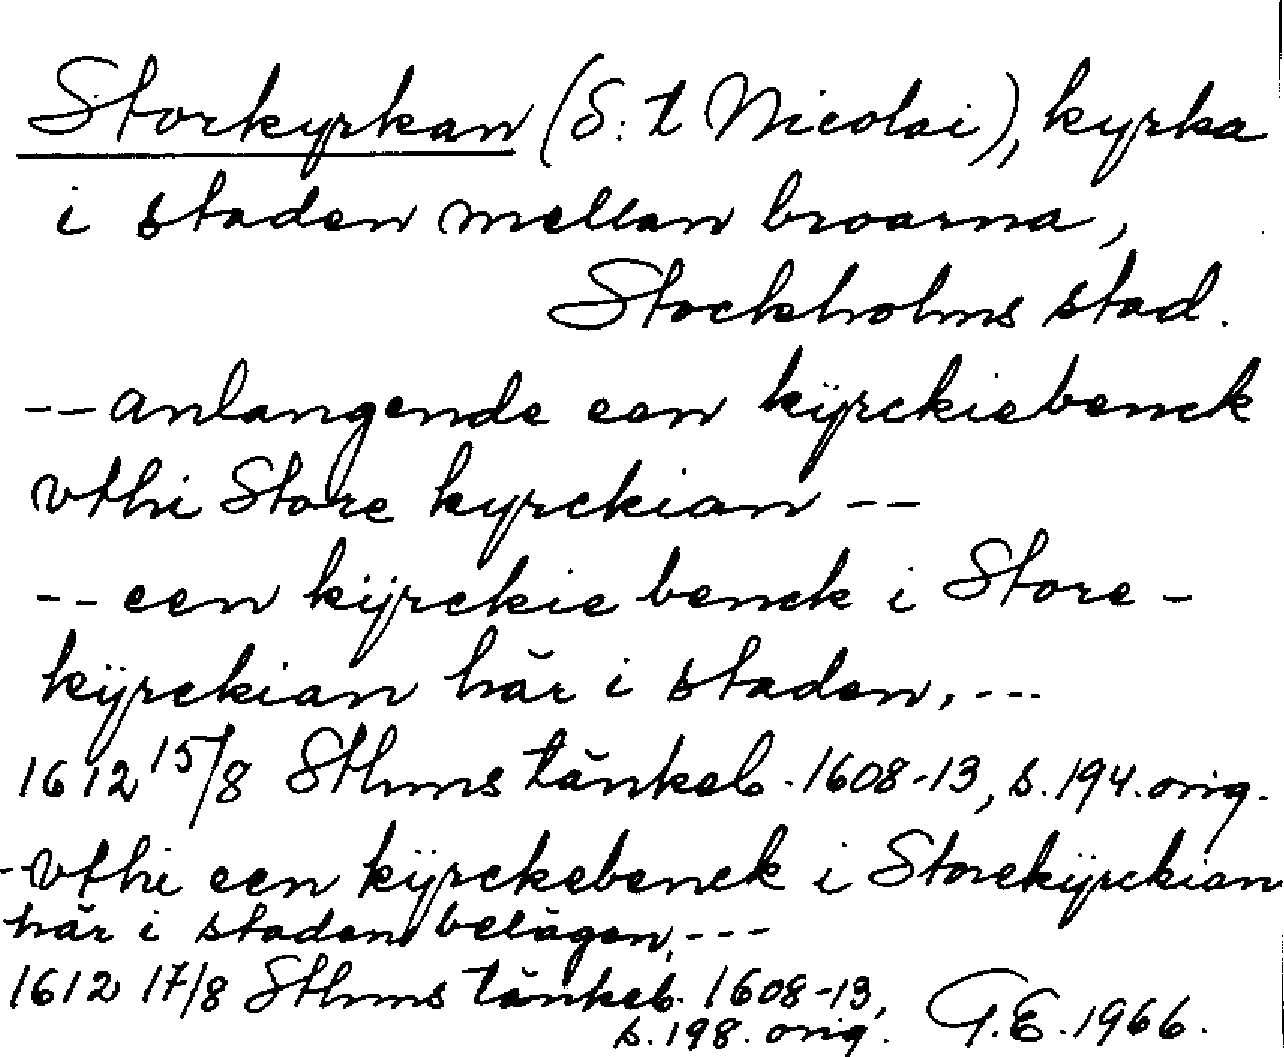 Storkyrkan (S:t Nicolai), kyrka
i staden mellan broarna,
Stockholms stad.
-- anlangende een kÿrckiebenck
vthi Store kyrckian --
-- een kÿrckie benck i Store-
kÿrckian här i staden. ---
1612 15/8 Sthms tänkeb. 1608-13, s. 194. orig.
-- vthi een kÿrckebenck i Storekÿrckian
här i staden belägen, ---
1612 17/8 Sthms tänkeb. 1608-13,
s. 198. orig. G.E. 1966.